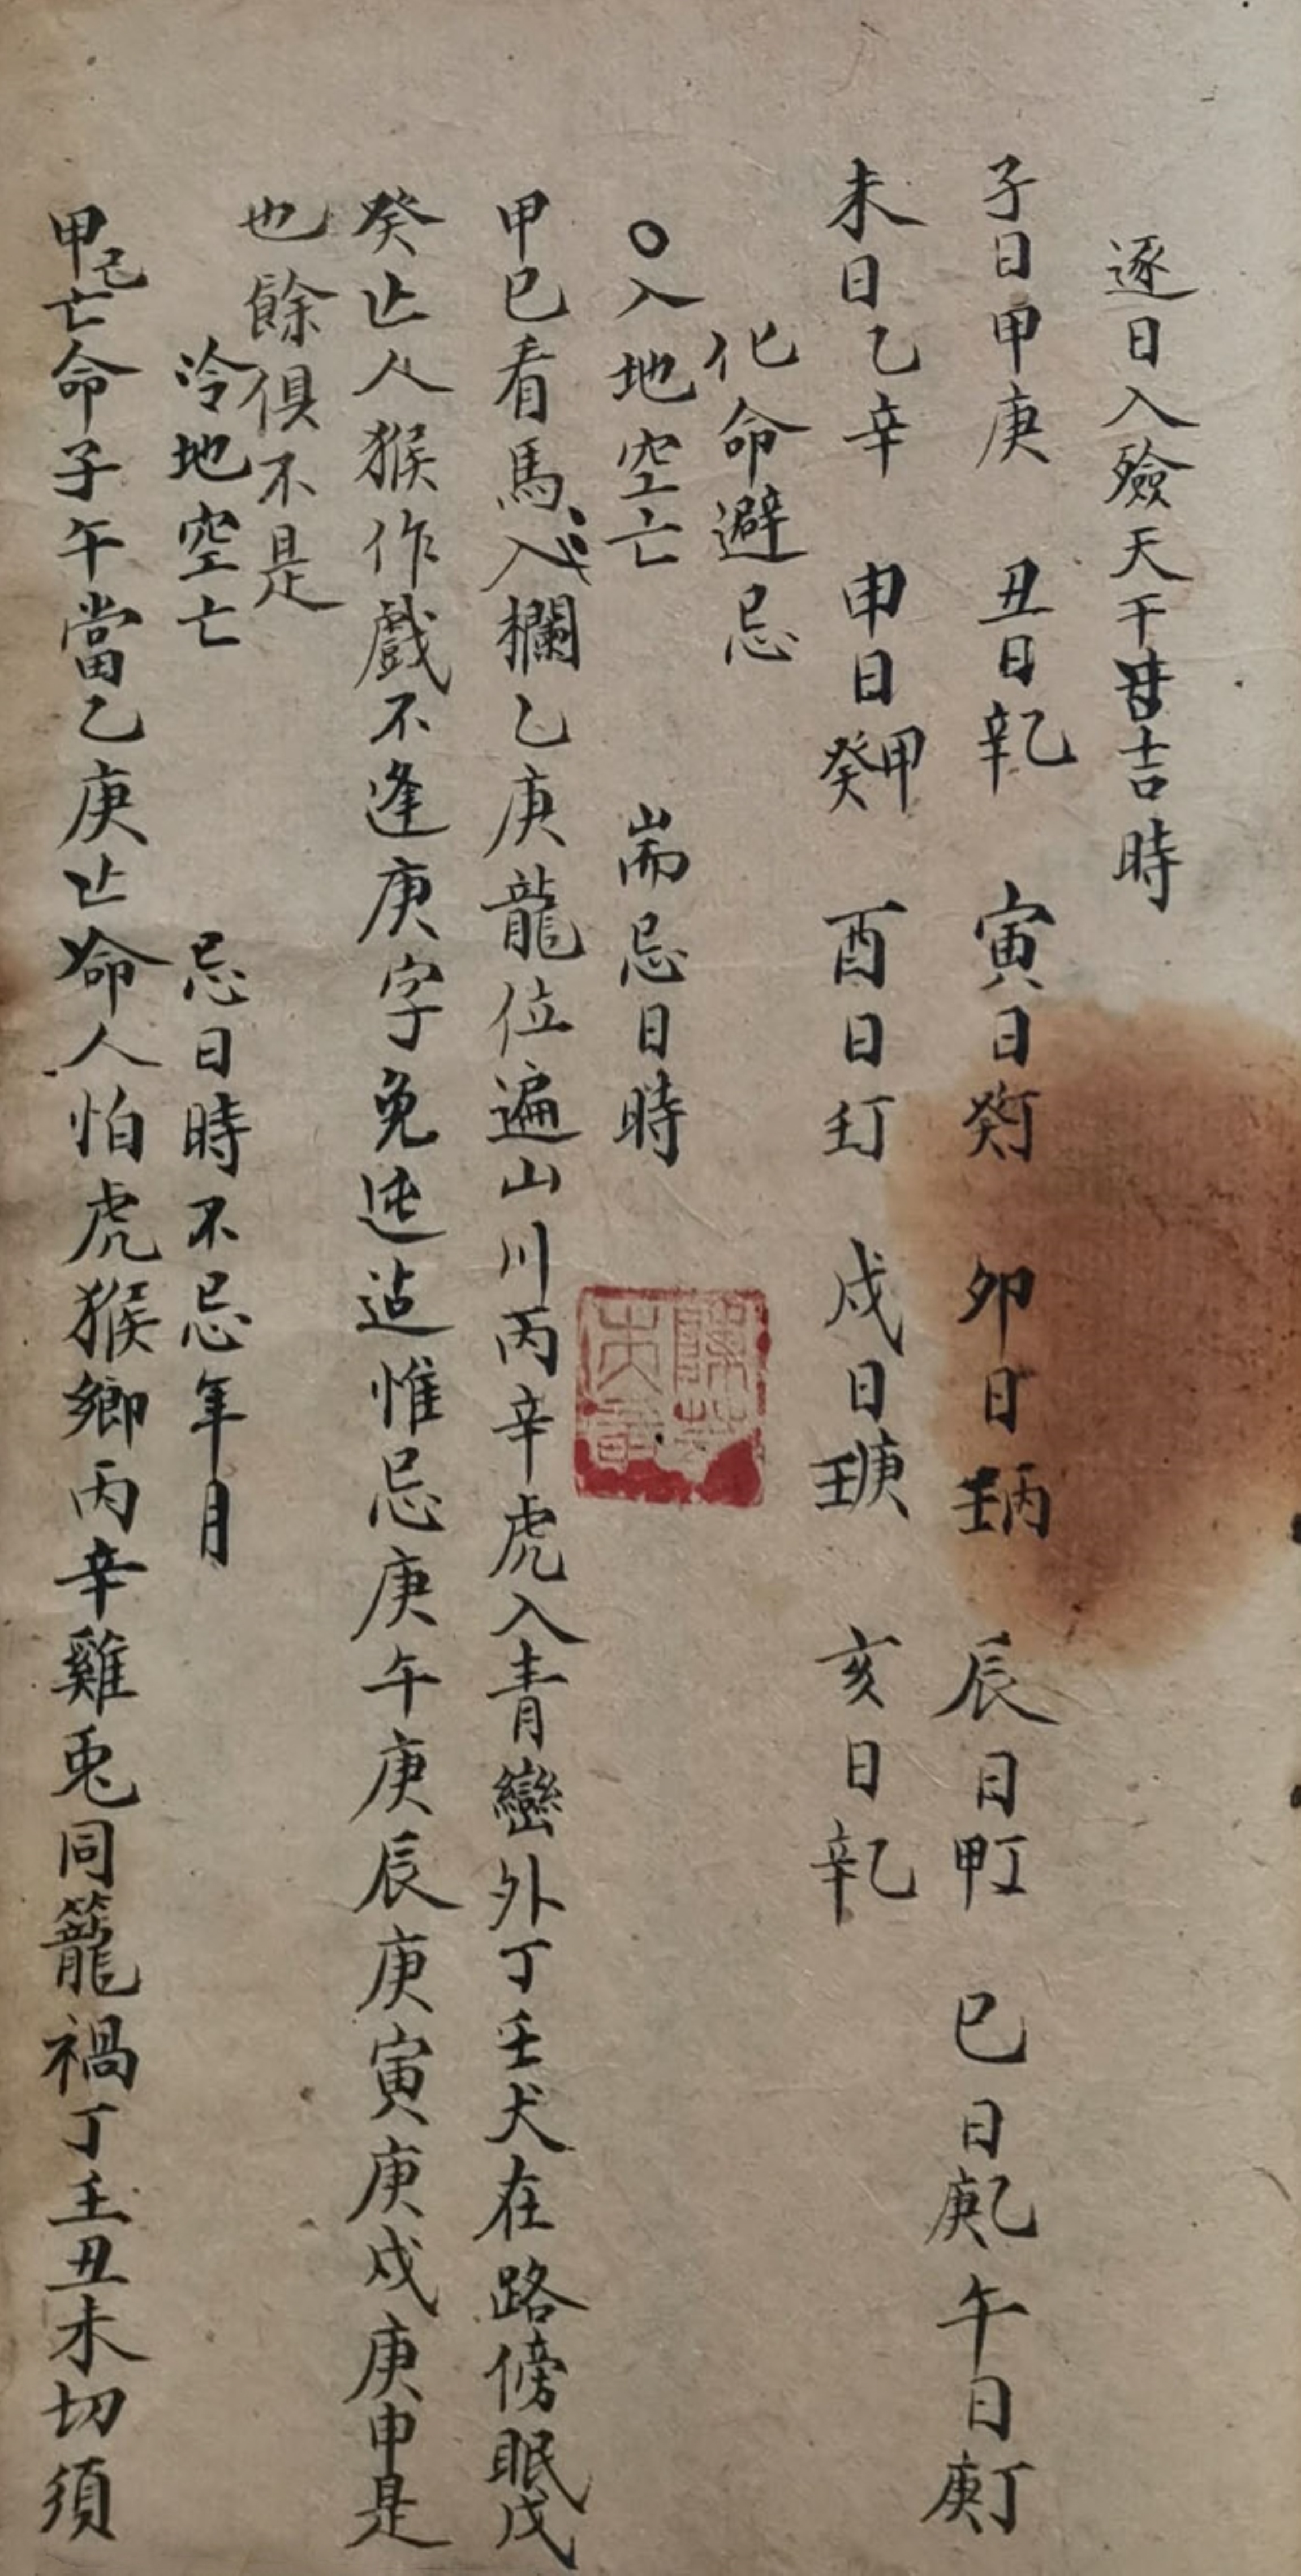 逐日入殮天干吉時
子日甲庚 丑日辛乙 寅日癸丁 卯日壬丙 辰日甲丁 巳日庚乙 午日庚丁
未日乙辛 申日癸甲 酉日壬丁 戌日壬庚 亥日辛乙
化命避忌
○入地空亡 耑忌日時
甲巳看馬入欄乙庚龍位遍山川丙辛虎入青巒外丁壬犬在路傍眠戊
癸亡人猴作戲不逢庚字免迍邅惟忌庚午庚辰庚寅庚戌庚申是
也餘俱不是
冷地空亡 忌日時不忌年月
甲己亡命子午當乙庚亡命人怕虎猴鄉丙辛雞兎同籠禍丁壬丑未切須